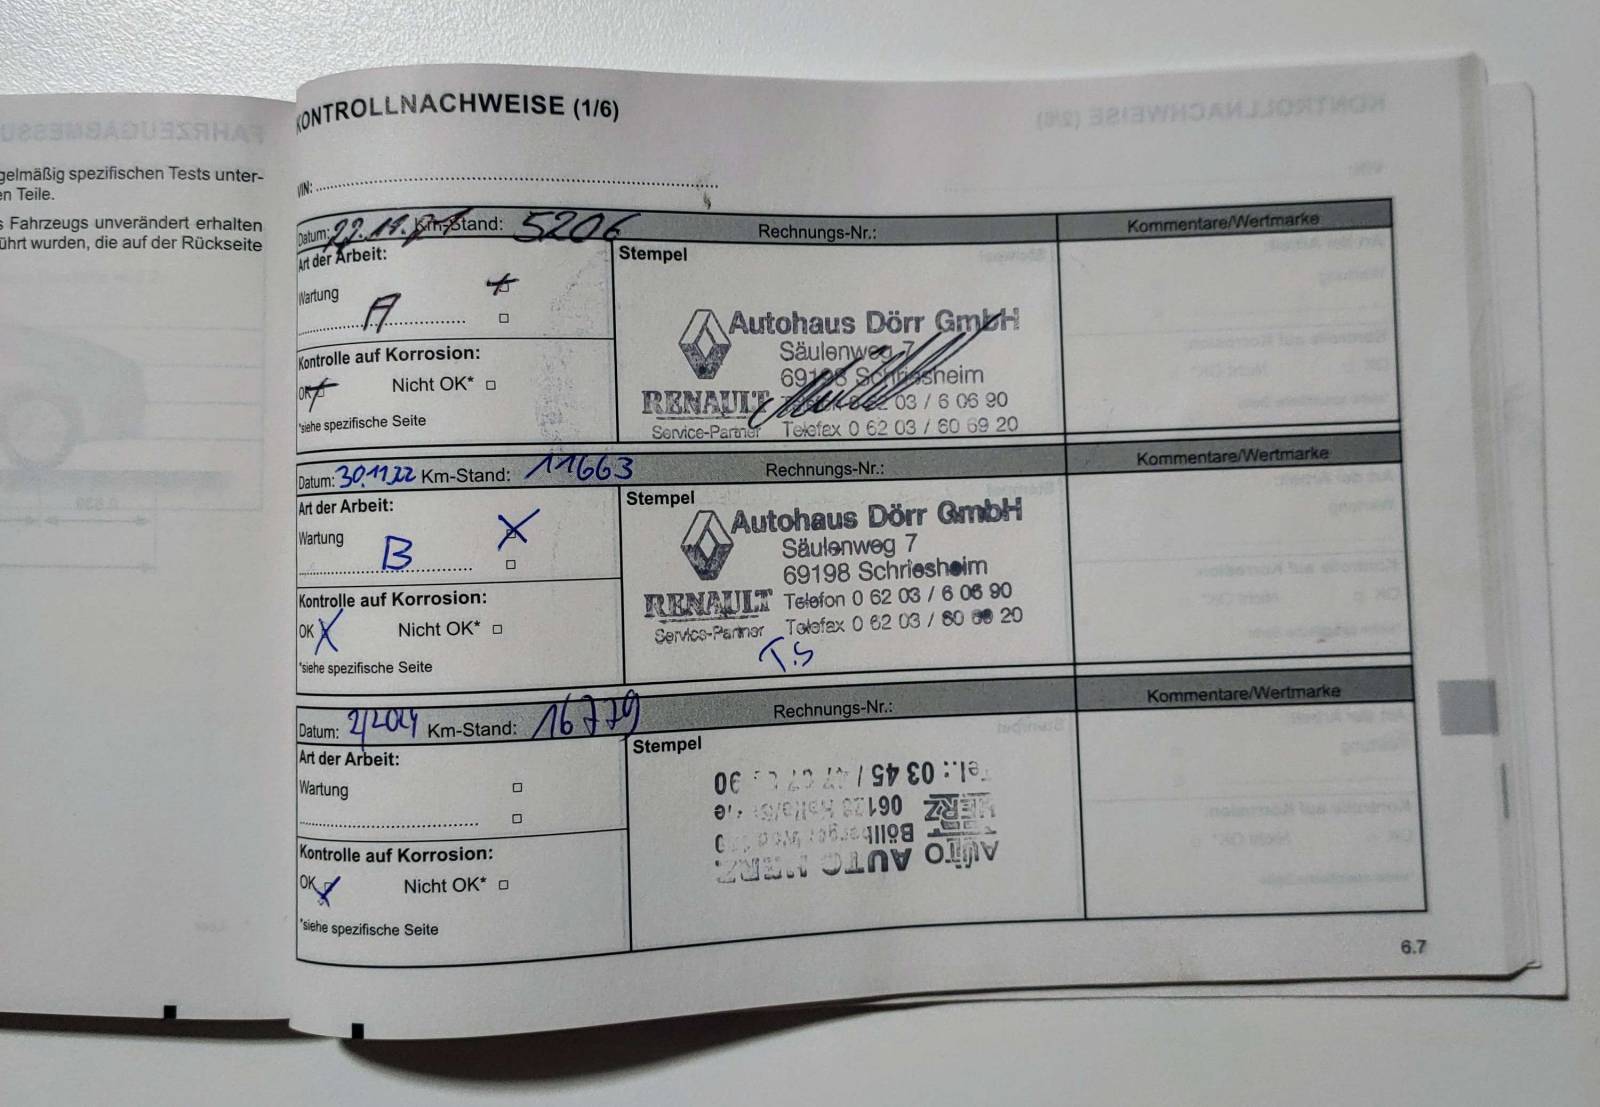 gelmäßig spezifischen Tests unter-
en Teile.
s Fahrzeugs unverändert erhalten
ührt wurden, die auf der Rückseite
KONTROLLNACHWEISE (1/6)
VIN:
Datum: Km-Stand: 5206 Rechnungs-Nr.: Kommentare/Wertmarke
Art der Arbeit:
Wartung
A
Kontrolle auf Korrosion:
OK Nicht OK*
*siehe spezifische Seite
Stempel
Autohaus Dörr GmbH
Säulenweg 7
69198 Schriesheim
RENAULT 03 / 6 06 90
Service-Partner Telefax 0 62 03 / 60 69 20
Datum: 30.11.22 Km-Stand: 11663 Rechnungs-Nr.: Kommentare/Wertmarke
Art der Arbeit:
Wartung
B
Kontrolle auf Korrosion:
OK Nicht OK*
*siehe spezifische Seite
Stempel
Autohaus Dörr GmbH
Säulenweg 7
69198 Schriesheim
RENAULT Telefon 0 62 03 / 6 06 90
Service-Partner Telefax 0 62 03 / 60 69 20
T.S
Datum: 2/2024 Km-Stand: 16779 Rechnungs-Nr.: Kommentare/Wertmarke
Art der Arbeit:
Wartung
Kontrolle auf Korrosion:
OK Nicht OK*
*siehe spezifische Seite
Stempel
AUTO AUTO HERZ
Böllberger Weg
HERZ 06128 Halle/Saale
Tel.: 03 45 /
6.7